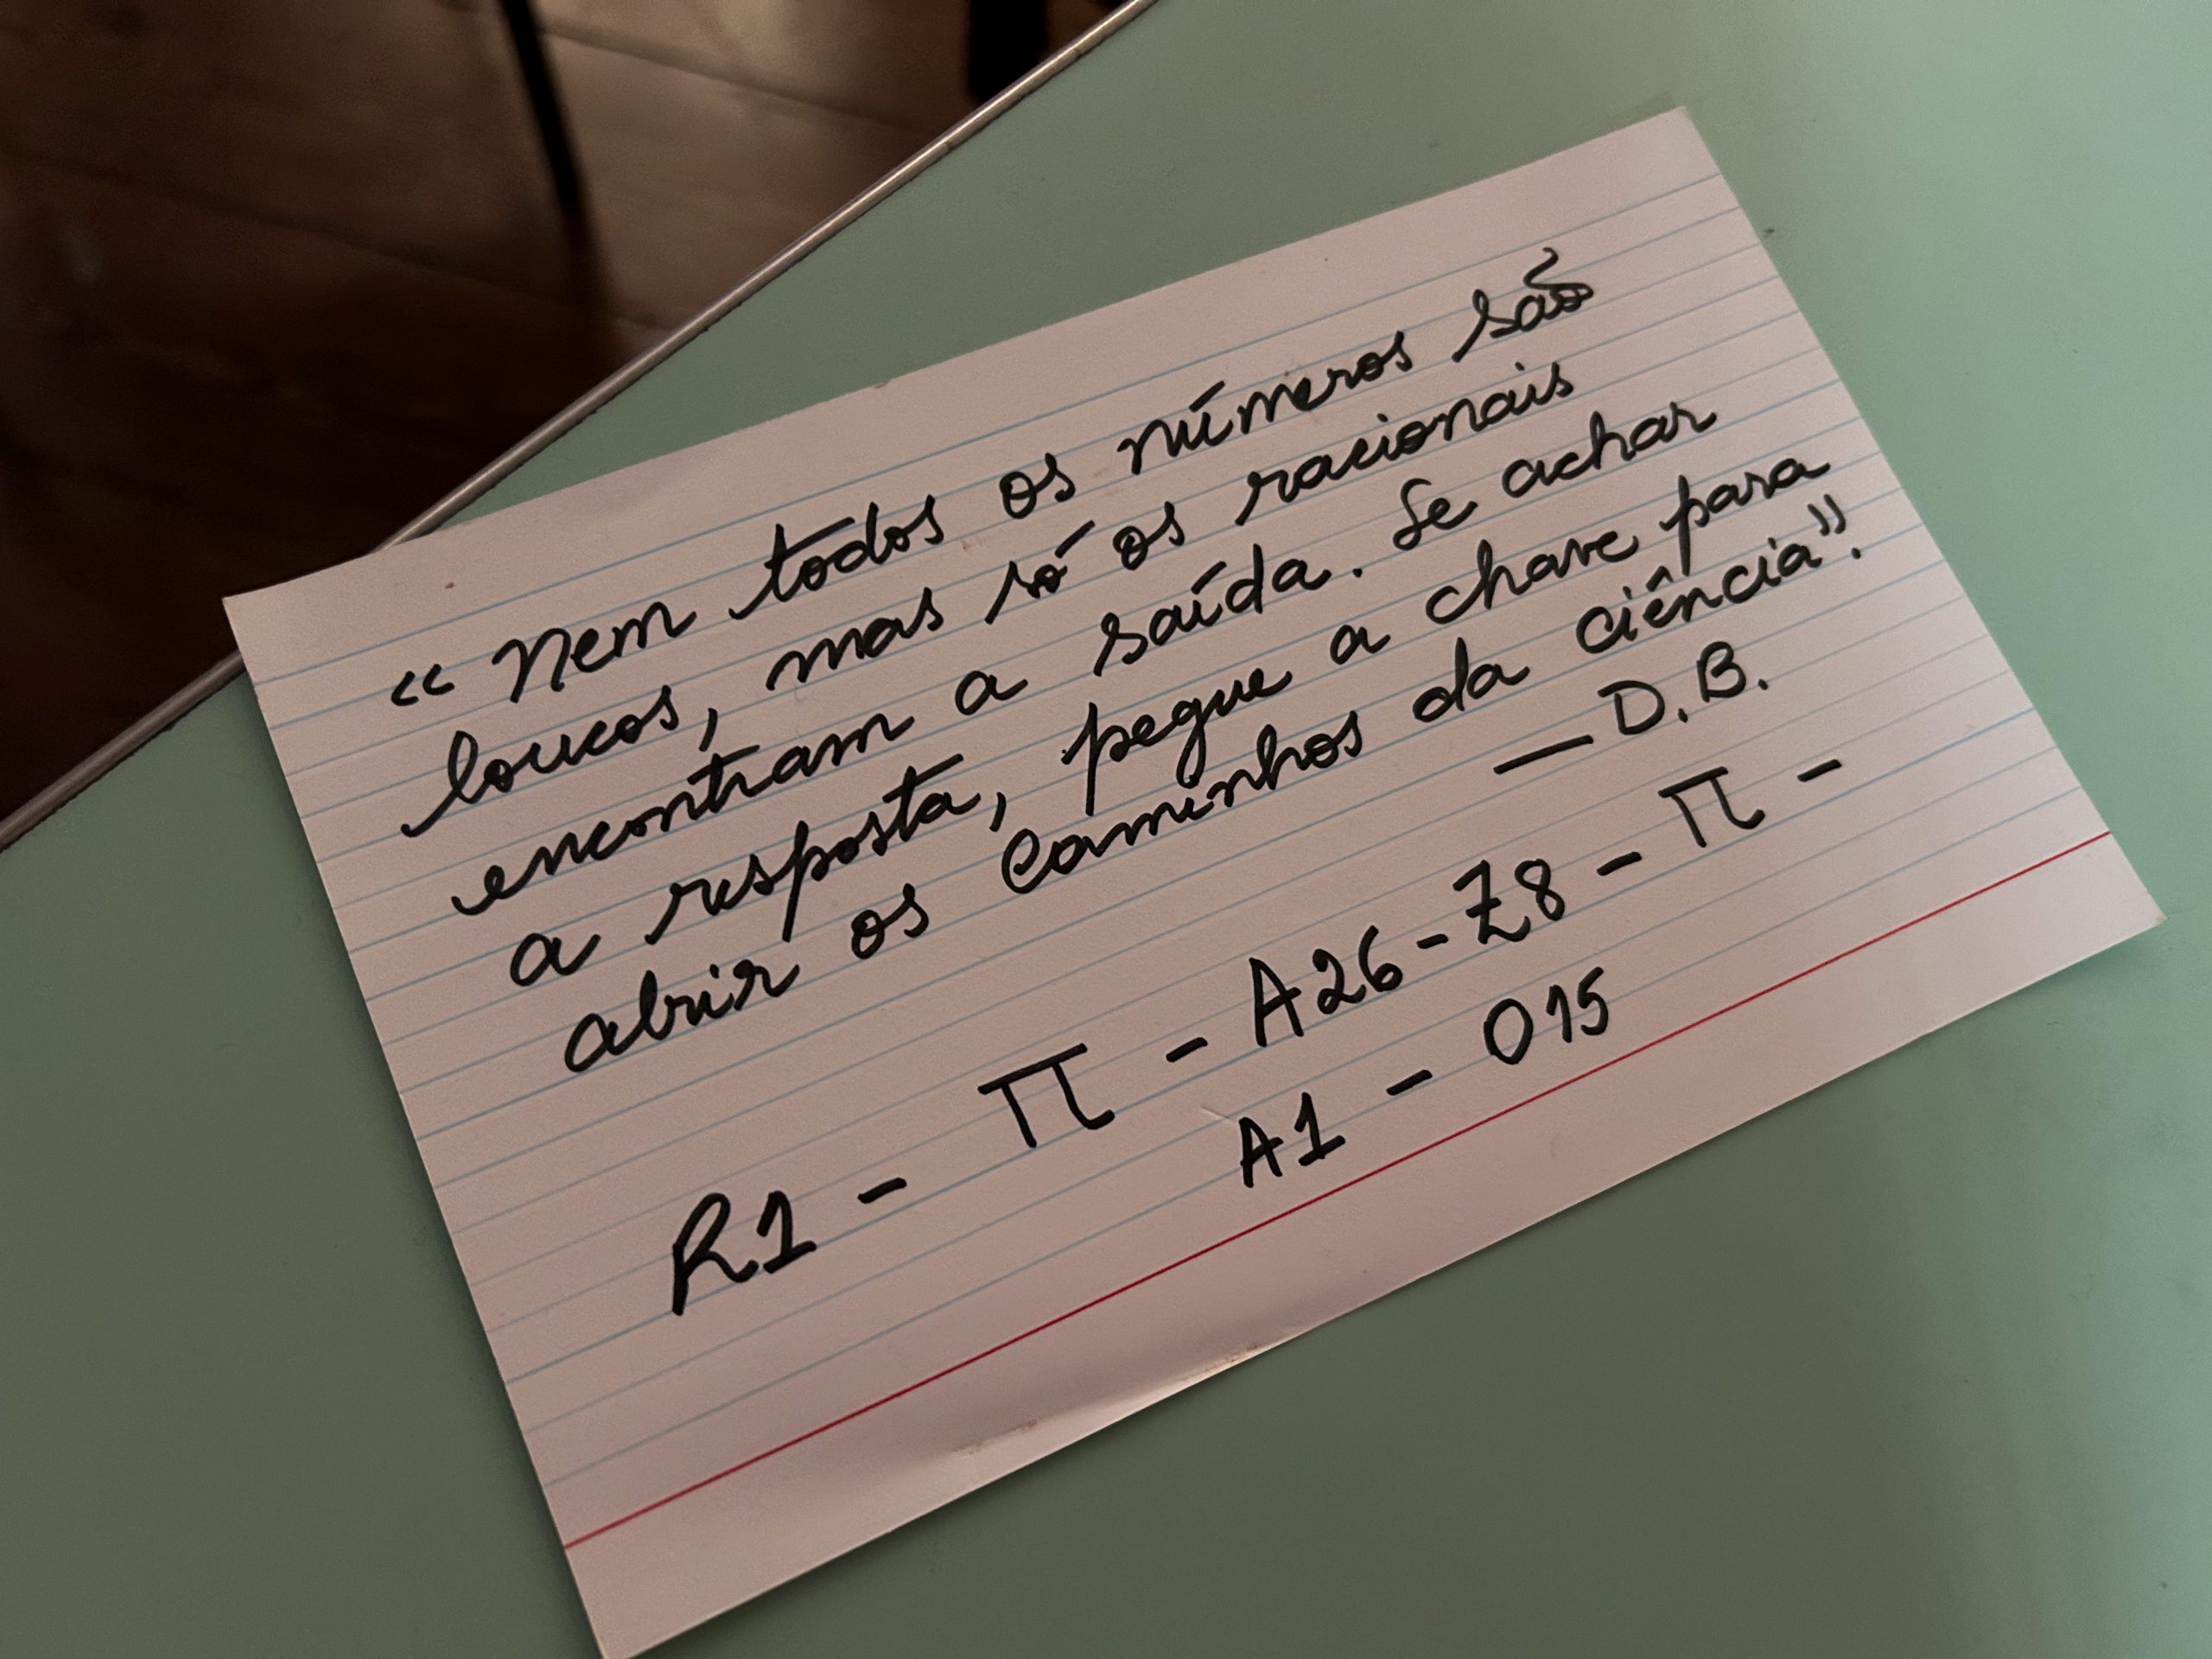 “ Nem todos os números são
loucos, mas só os racionais
encontram a saída. Se achar
a resposta, pegue a chave para
abrir os caminhos da ciência”.
— D.B.
R1 - π - A26 - Z8 - π -
A1 - 015